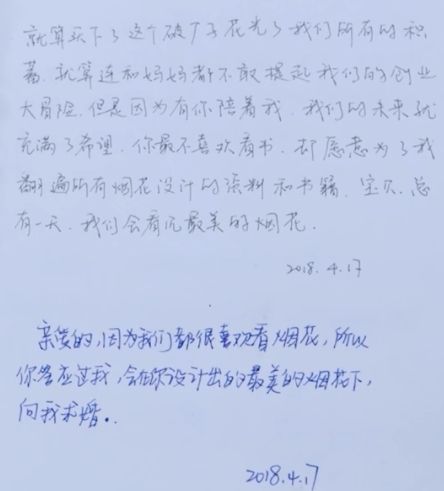 就算买下了这个破厂子花光了我们所有的积
蓄.就算连和妈妈都不敢提起我们的创业
大冒险.但是因为有你陪着我.我们的未来就
充满了希望.你最不喜欢看书.却愿意为了我
翻遍所有烟花设计的资料和书籍.宝贝.总
有一天.我们会看见最美的烟花.
2018.4.17
亲爱的,因为我们都很喜欢看烟花,所以
你答应过我,会在你设计出的最美的烟花下,
向我求婚..
2018.4.17